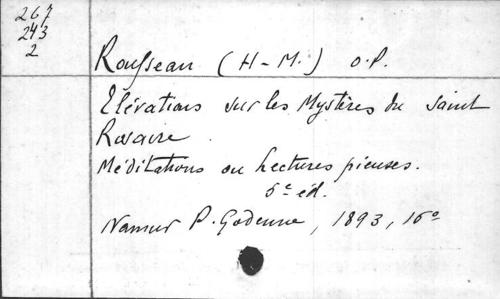 267
243
2
Rousseau (H-M.) O.P.
Elévations sur les Mystères du Saint
Rosaire.
Méditations ou lectures pieuses.
5e éd.
Namur P. Godenne, 1893, 16o